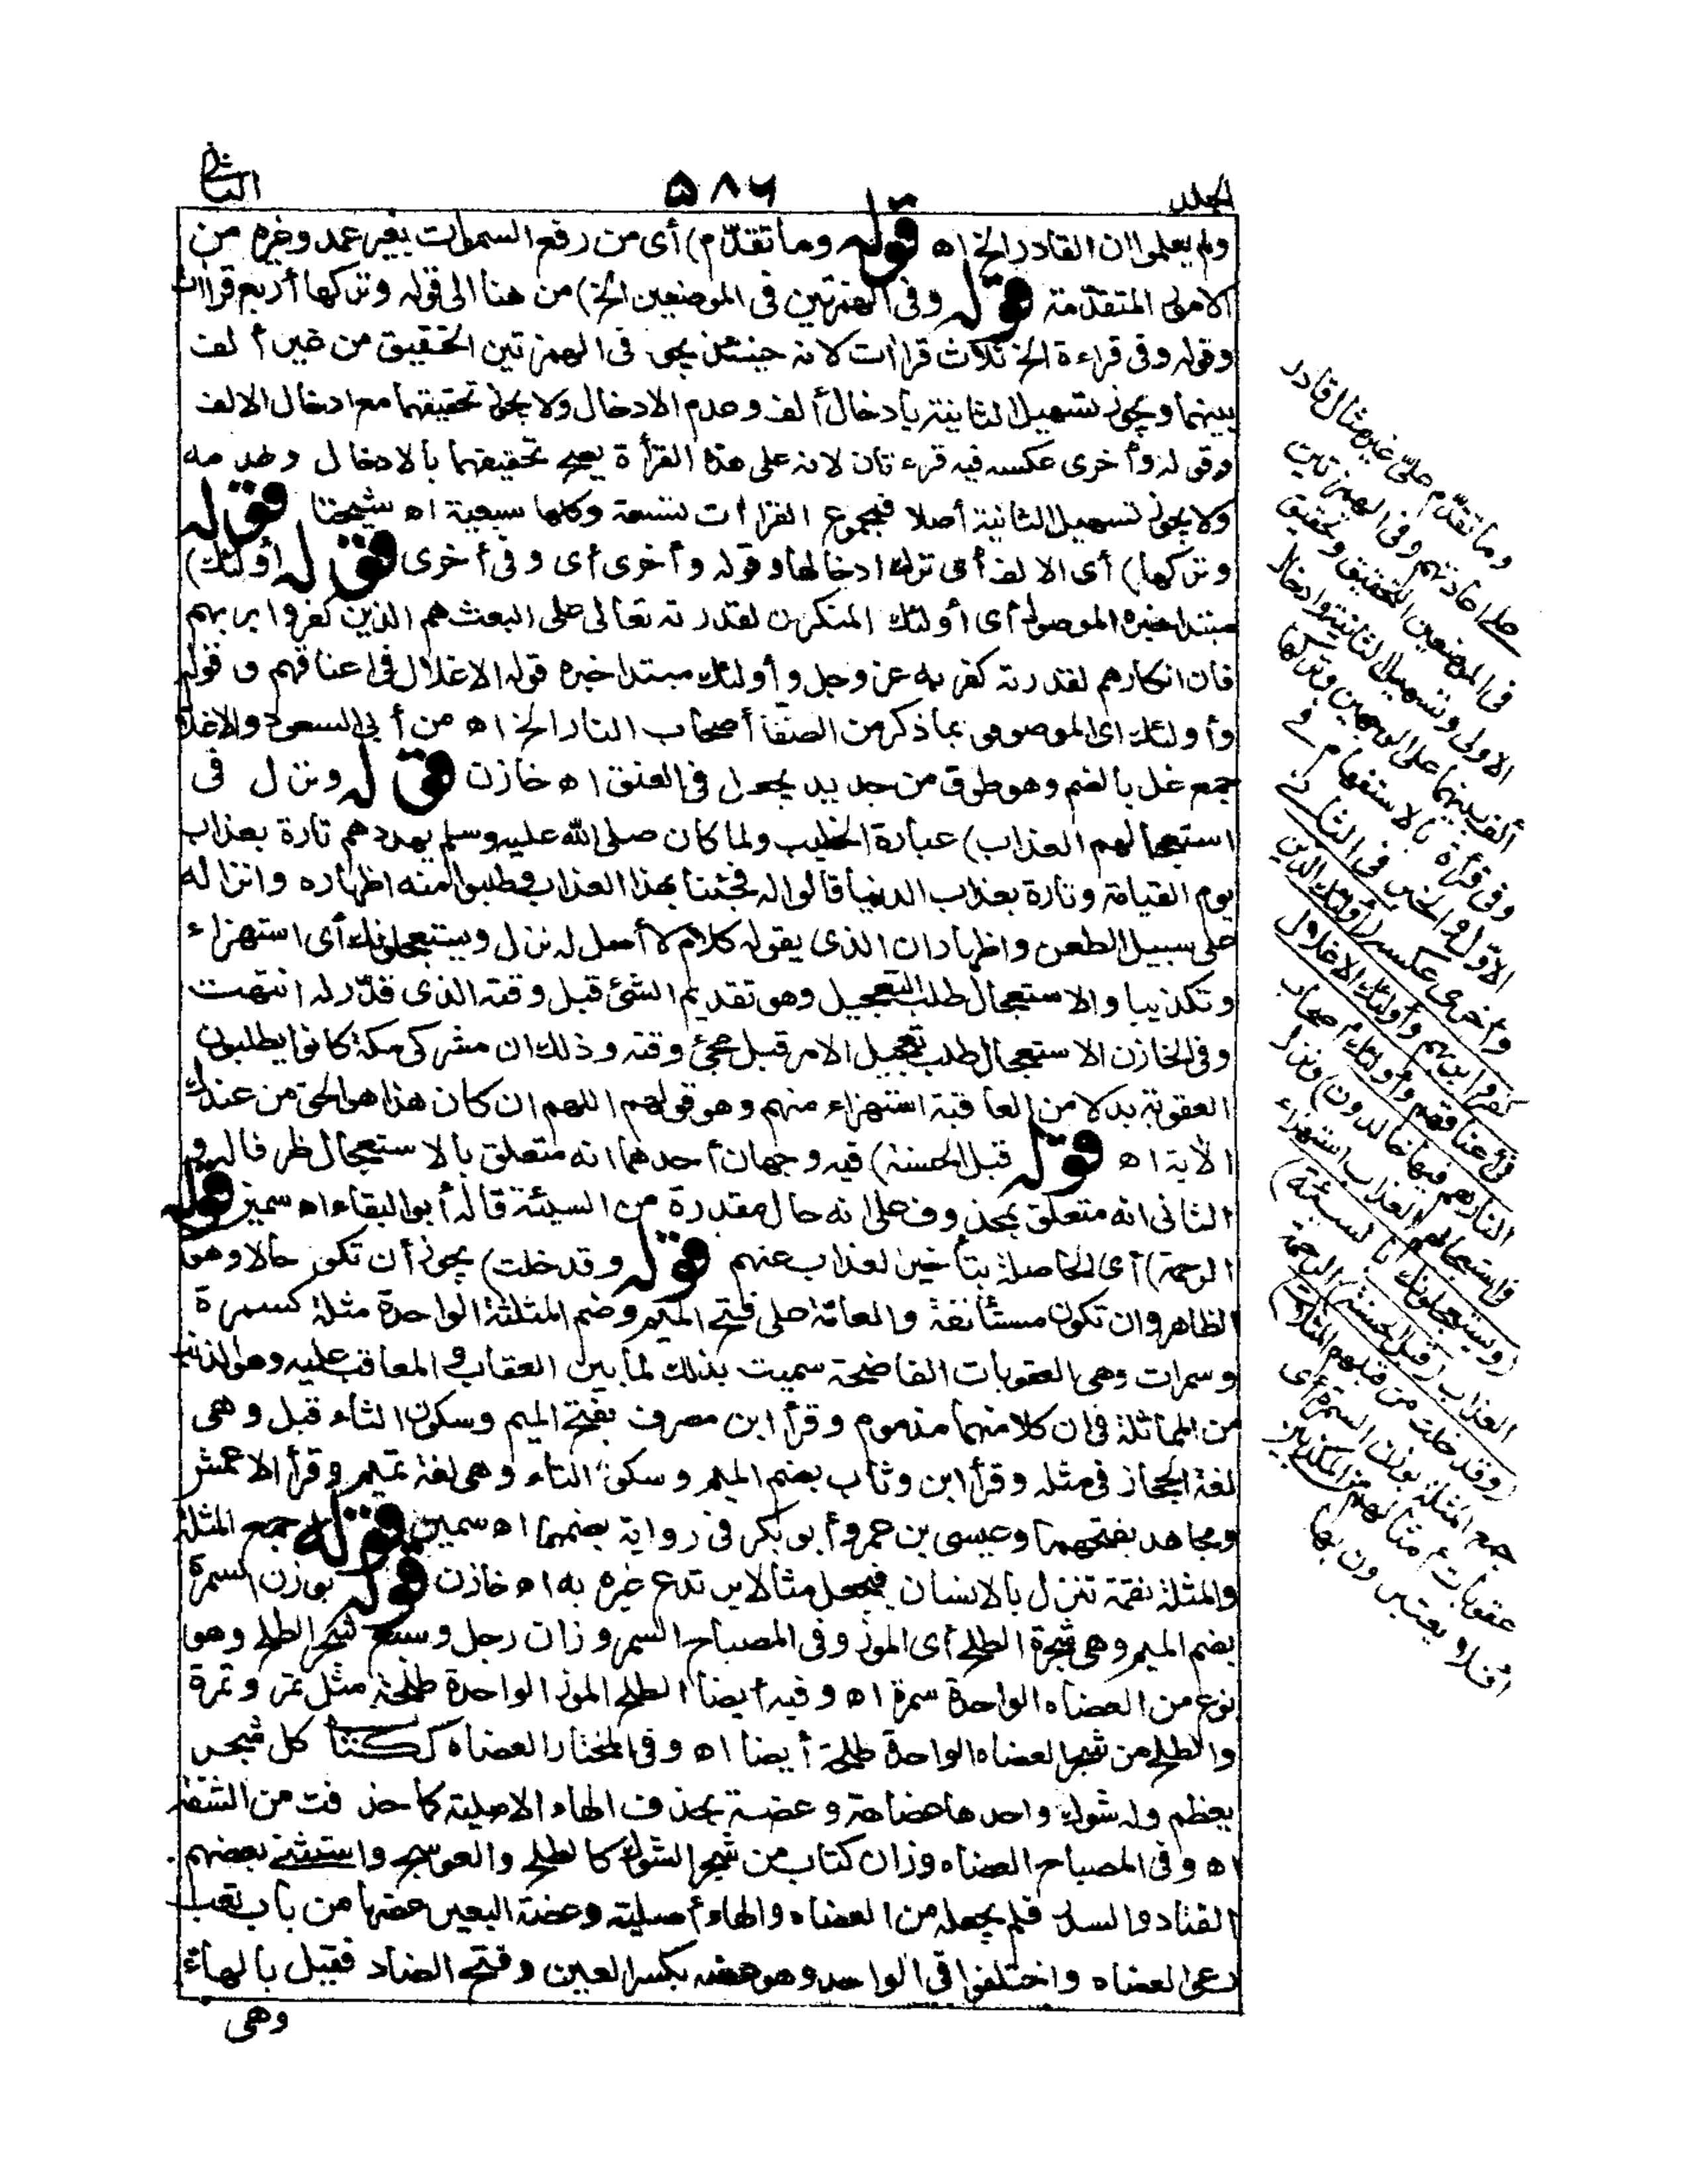 المجلد
٥٨٦
الثانى
ولم يعلموا ان القادر الخ اه قوله وما تقدّم) أى من رفع السموات بغير عمد وغيره من
الامور المتقدّمة قوله وفى الهمزتين فى الموضعين الخ) من هنا الى قوله وتركها أربع قراآت
وقوله وفى قراءة الخ ثلاث قراآت لانه حينئذ يجوز فى الهمزتين التحقيق من غير ألف
بينهما ويجوز تسهيل الثانية بادخال ألف وعدم الادخال ولا يجوز تحقيقهما مع ادخال الالف
وقوله وأخرى عكسه فيه قراءتان لانه على هذه القرأة يصح تحقيقهما بالادخال وعدمه
ولا يجوز تسهيل الثانية أصلا فمجموع القراآت تسعة وكلها سبعية اه شيخنا قوله
وتركها) أى الالف أى ترك ادخالها وقوله وأخرى أى وفى أخرى قوله (أولئك)
مبتدا خبره الموصول أى أولئك المنكرون لقدرته تعالى على البعث هم الذين كفروا بربهم
فان انكارهم لقدرته كفر به عز وجل وأولئك مبتدا خبره قوله الاغلال فى اعناقهم وقوله
وأولئك اى الموصوفون بما ذكر من الصفا أصحاب النار الخ اه من أبى السعود والاغلال
جمع غل بالضم وهو طوق من حديد يجعل فى العنق اه خازن قوله ونزل فى
استعجالهم العذاب) عبارة الخطيب ولما كان صلى الله عليه وسلم يهددهم تارة بعذاب
يوم القيامة وتارة بعذاب الدنيا قالوا له فجئنا بهذا العذاب وطلبوا منه اظهاره وانزاله
على سبيل الطعن واظهار ان الذى يقوله كلام لا أصل له نزل ويستعجلونك أى استهزاء
وتكذيبا والاستعجال طلب التعجيل وهو تقديم الشئ قبل وقته الذى قدّر له انتهت
وفى الخازن الاستعجال طلب تعجيل الامر قبل مجئ وقته وذلك ان مشركى مكة كانوا يطلبون
العقوبة بدلا من العاقبة استهزاء منهم وهو قولهم اللهم ان كان هذا هو الحق من عندك
الآية اه قوله قبل الحسنة) فيه وجهان أحدهما انه متعلق بالاستعجال ظرفا له و
الثانى انه متعلق بمحذوف على انه حال مقدرة من السيئة قاله أبو البقاء اه سمين قوله
الرحمة) أى الحاصلة بتأخير العذاب عنهم قوله وقد خلت) يجوز أن تكون حالا وهو
الظاهر وان تكون مستأنفة والعامّة على فتح الميم وضم المثلثة الواحدة مثلة كسمرة
وسمرات وهى العقوبات الفاضحة سميت بذلك لما بين العقاب والمعاقب عليه وهو الذنب
من المماثلة فى ان كلا منهما مذموم وقرأ ابن مصرف بفتح الميم وسكون الثاء قيل وهى
لغة الحجاز فى مثله وقرأ ابن وثاب بضم الميم وسكون الثاء وهى لغة تميم وقرأ الاعمش
ومجاهد بفتحهما وعيسى بن عمرو وأبو بكر فى رواية بضمهما اه سمين قوله جمع المثلة
والمثلة نقمة تنزل بالانسان فيجعل مثالا يرتدع غيره به اه خازن قوله بوزن السمرة
بضم الميم وهى شجرة الطلح أى الموز وفى المصباح السمر وزان رجل وسبع شجر الطلح وهو
نوع من العضاه الواحدة سمرة اه وفيه أيضا الطلح الموز الواحدة طلحة مثل تمر وتمرة
والطلح من شجر العضاه الواحدة طلحة أيضا اه وفى المختار العضاه ككتاب كل شجر
يعظم وله شوك واحدها عضاهة وعضة بحذف الهاء الاصلية كما حذفت من الشفة
اه وفى المصباح العضاه وزان كتاب من شجر الشوك كالطلح والعوسج واستثنى بعضهم
القتاد والسدر فلم يجعله من العضاه والهاء أصلية وعضة البعير عضها من باب تعب
رعى العضاه واختلفوا فى الواحد وهو عضه بكسر العين وفتح الضاد فقيل بالهاء
وهى
وما تقدّم على غير مثال قادر
على اعادتهم وفى الهمزتين
فى الموضعين التحقيق وتحقيق
الاولى وتسهيل الثانية وادخال
ألف بينهما على الوجهين وتركها
وفى قرأة بالاستفهام فى
الاوّل والخبر فى الثانى
وأخرى عكسه (أولئك الذين
كفروا بربهم وأولئك الاغلال
فى أعناقهم وأولئك أصحاب
النار هم فيها خالدون) ونزل
فى استعجالهم العذاب استهزاء
(ويستعجلونك بالسيئة)
العذاب (قبل الحسنة) الرحمة
(وقد خلت من قبلهم المثلات)
جمع المثلة بوزن السمرة أى
عقوبات أمثالهم من المكذبين
أفلا يعتبرون بها